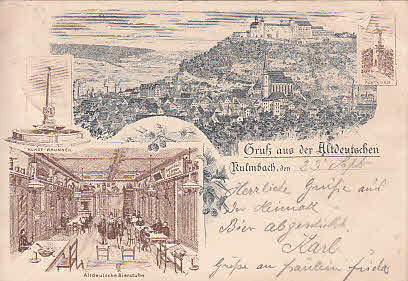 KUNST-BRUNNEN
Gruß aus der Altdeutschen
Kulmbach, den 23 Sept
Herzliche Grüße aus
Der Heimath
Bier
Karl
Grüße an fräulein
Altdeutsche Bierstube